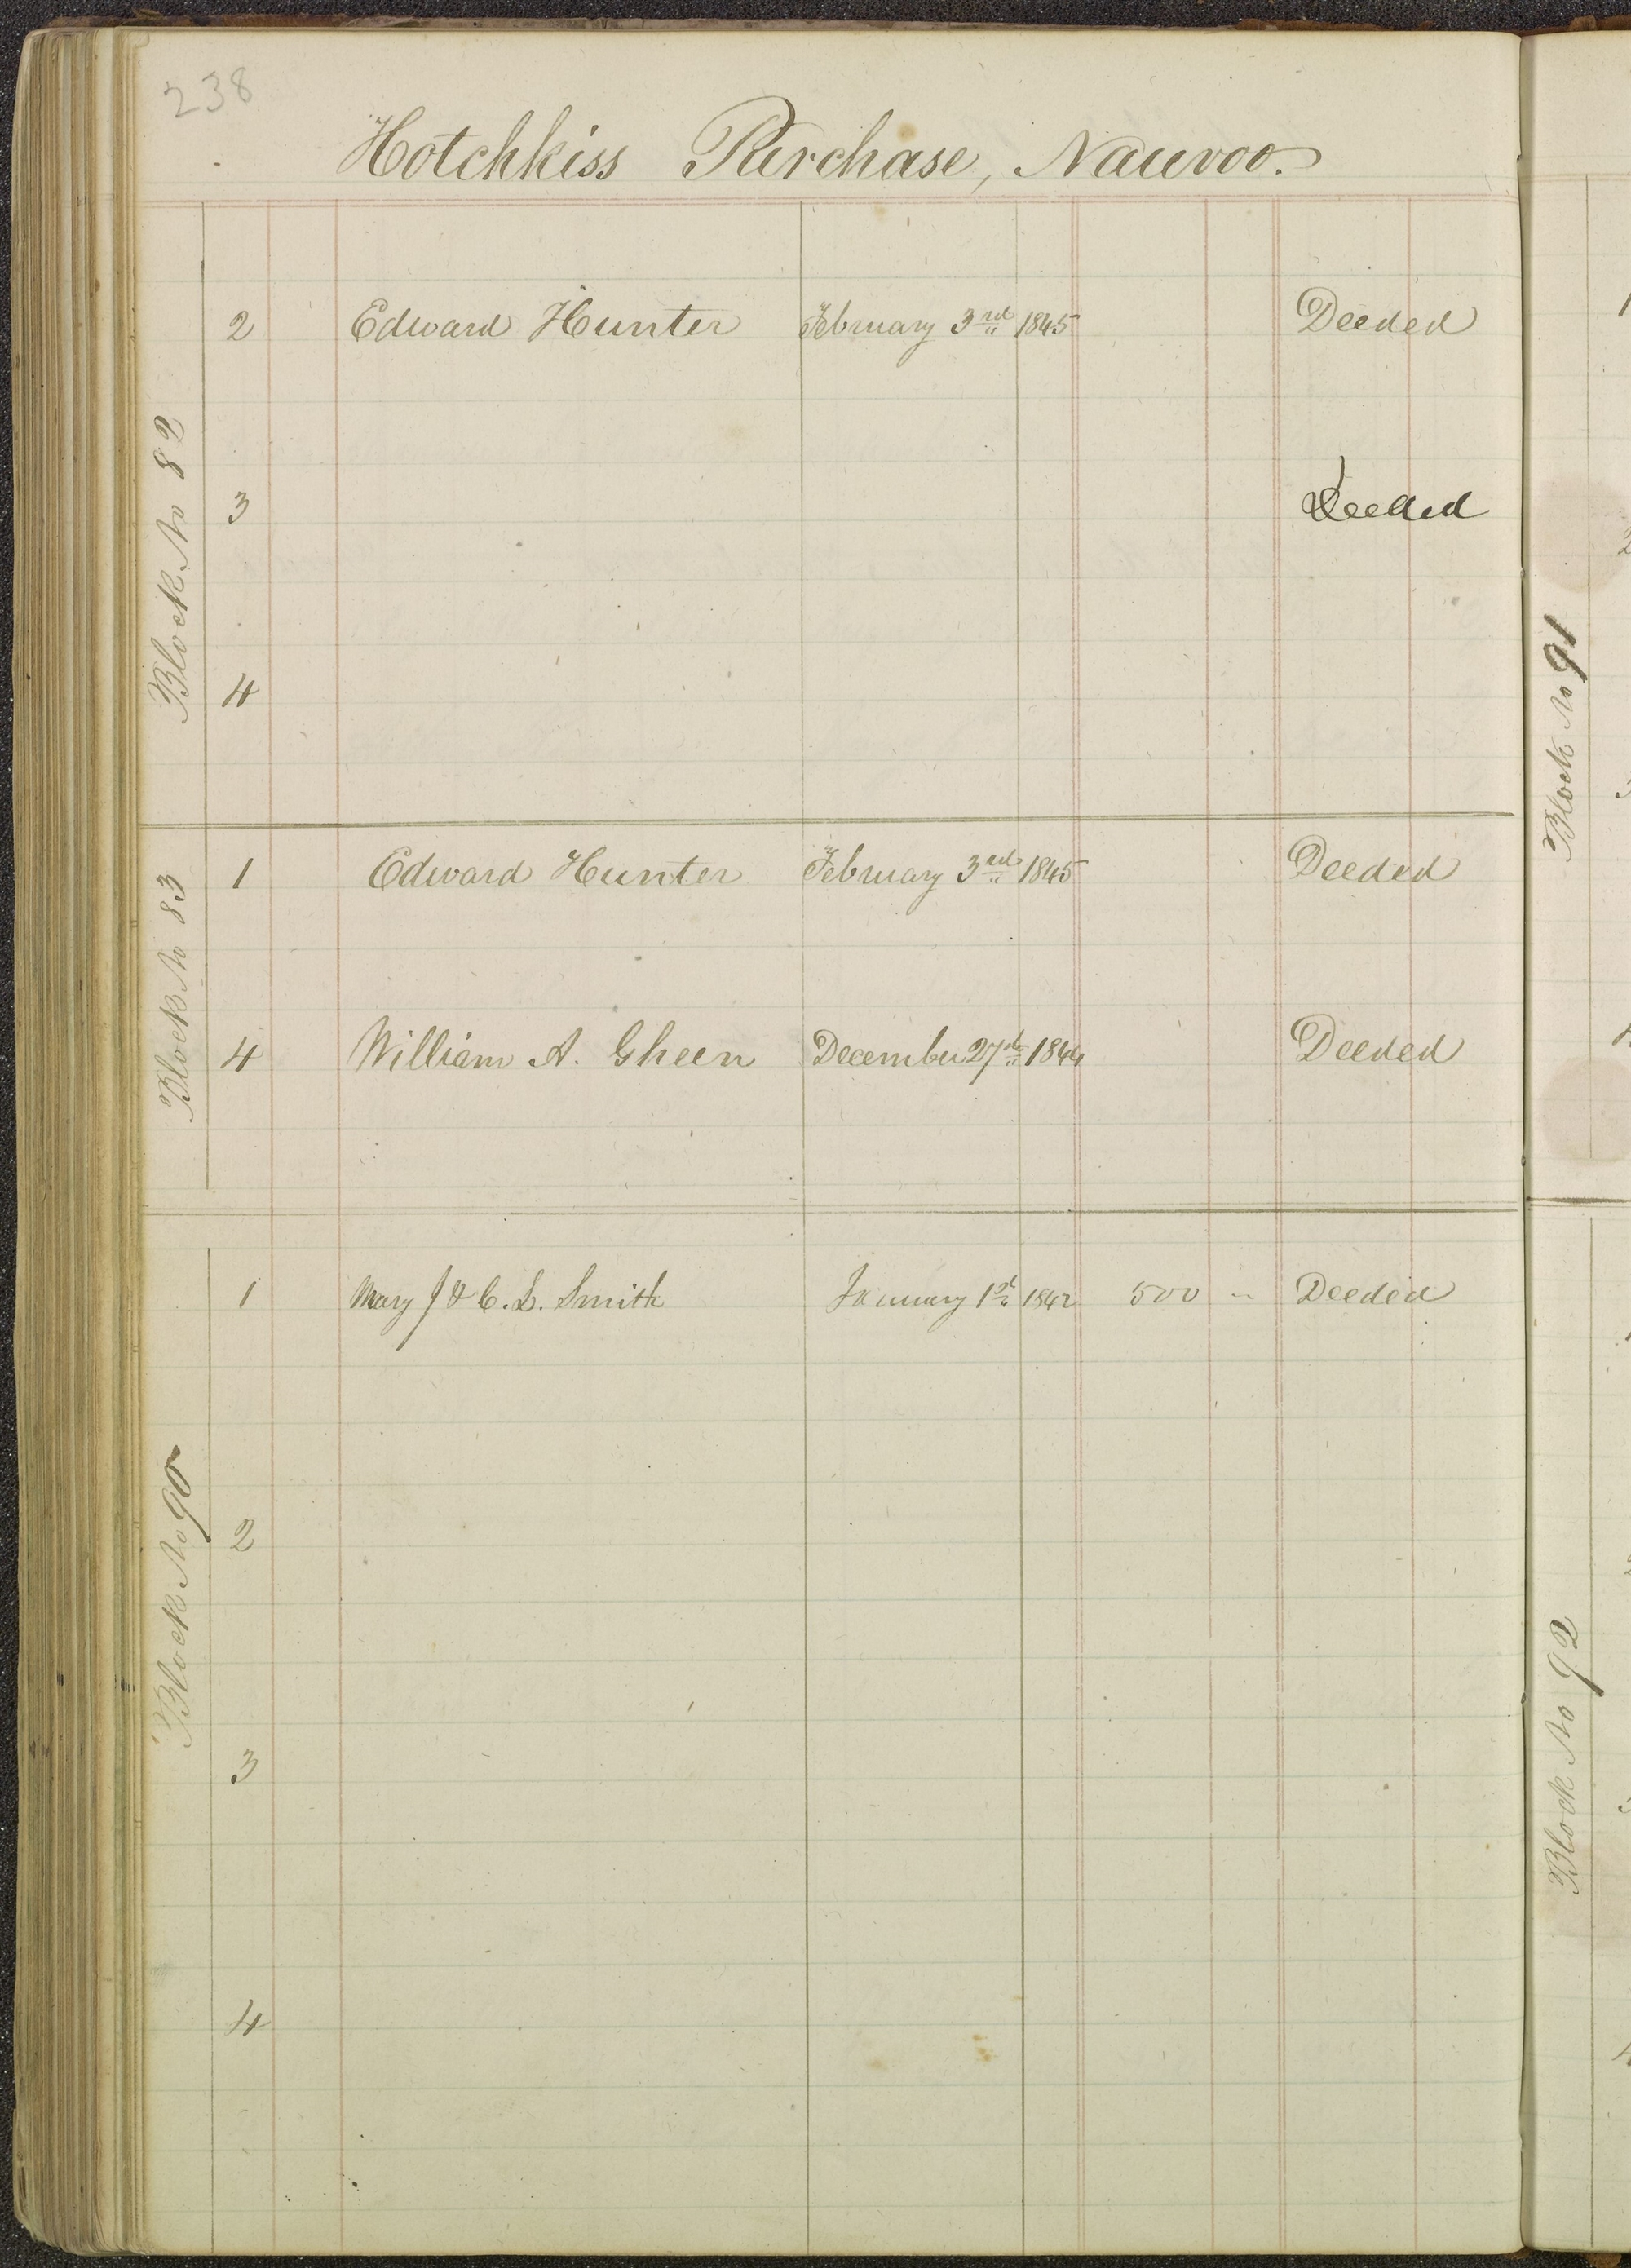 238
Hotchkiss Purchase, Nauvoo.
Block No 82
2 Edward Hunter February 3rd 1845 Deeded
3 Deeded
4
Block No 83
1 Edward Hunter February 3rd 1845 Deeded
4 William A. Gheen December 27th 1844 Deeded
Block No 90
1 Mary J & C. L. Smith January 1st 1842 500 " Deeded
2
3
4
Block No 91
Block No 92